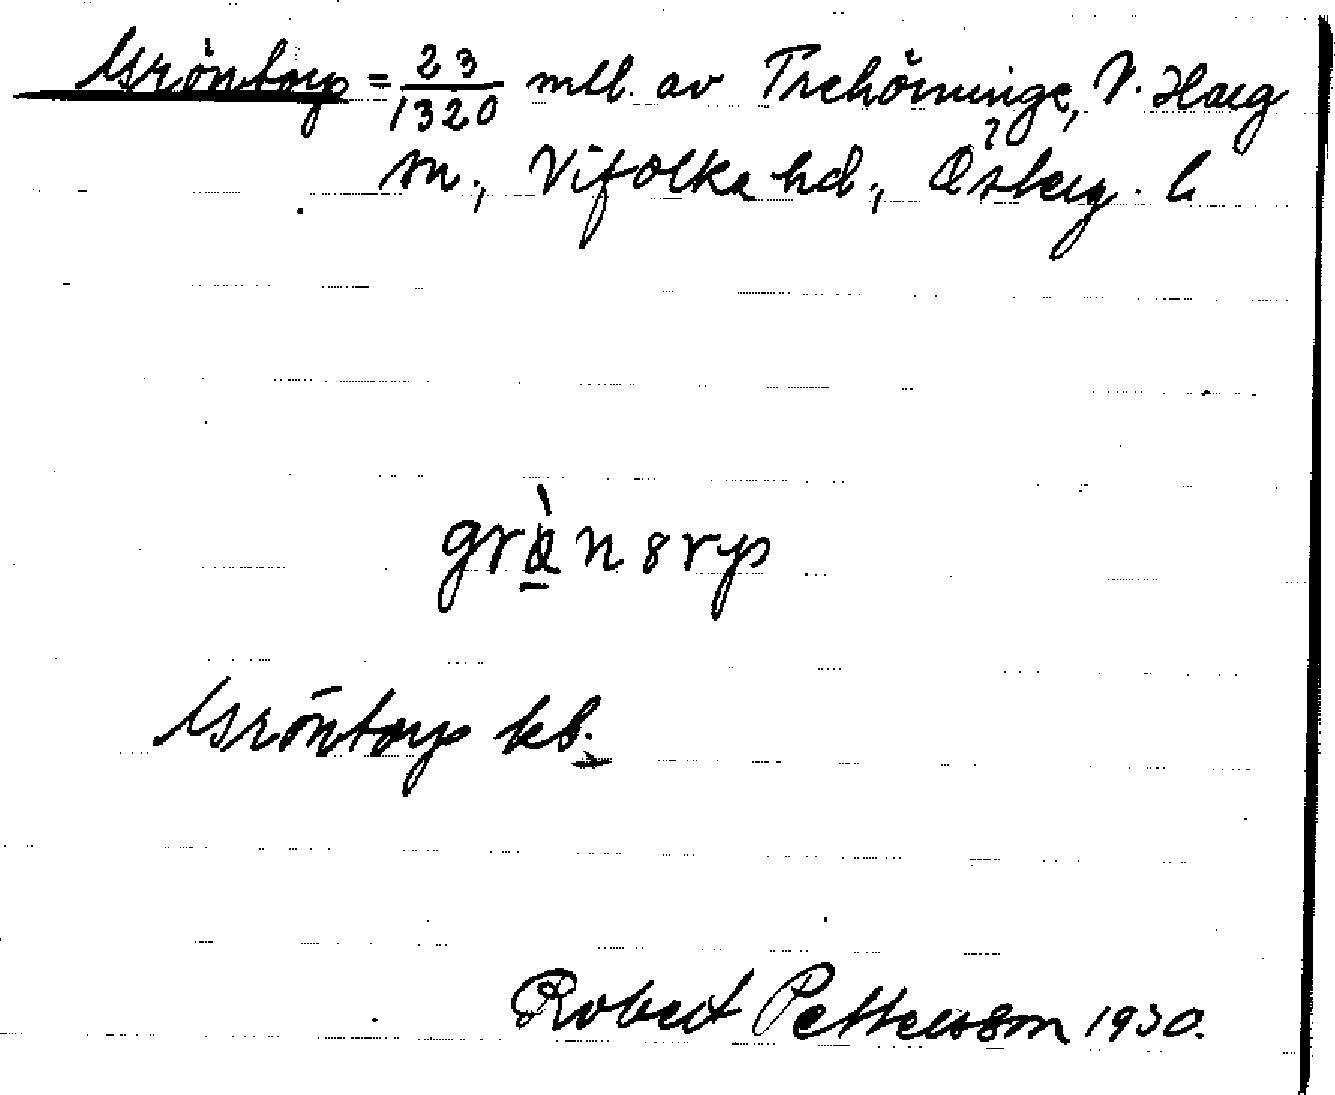 Gröntorp = 23/1320 mtl. av Trehörninge, V. Harg
sn., Vifolka hd., Österg. l.
grànsrp
Gröntorp kb.
Robert Pettersson 1930.